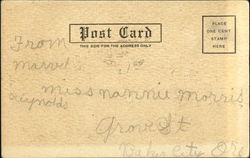 Post Card
THIS SIDE FOR THE ADDRESS ONLY
PLACE
ONE CENT
STAMP
HERE
From
Marvel
Reynolds
Miss Nannie Morris
Grove St
Baker City Ore